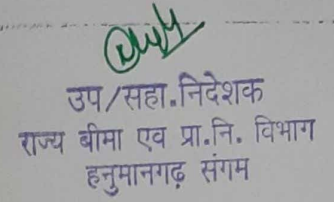 उप/सहा.निदेशक
राज्य बीमा एव प्रा.नि. विभाग
हनुमानगढ़ संगम